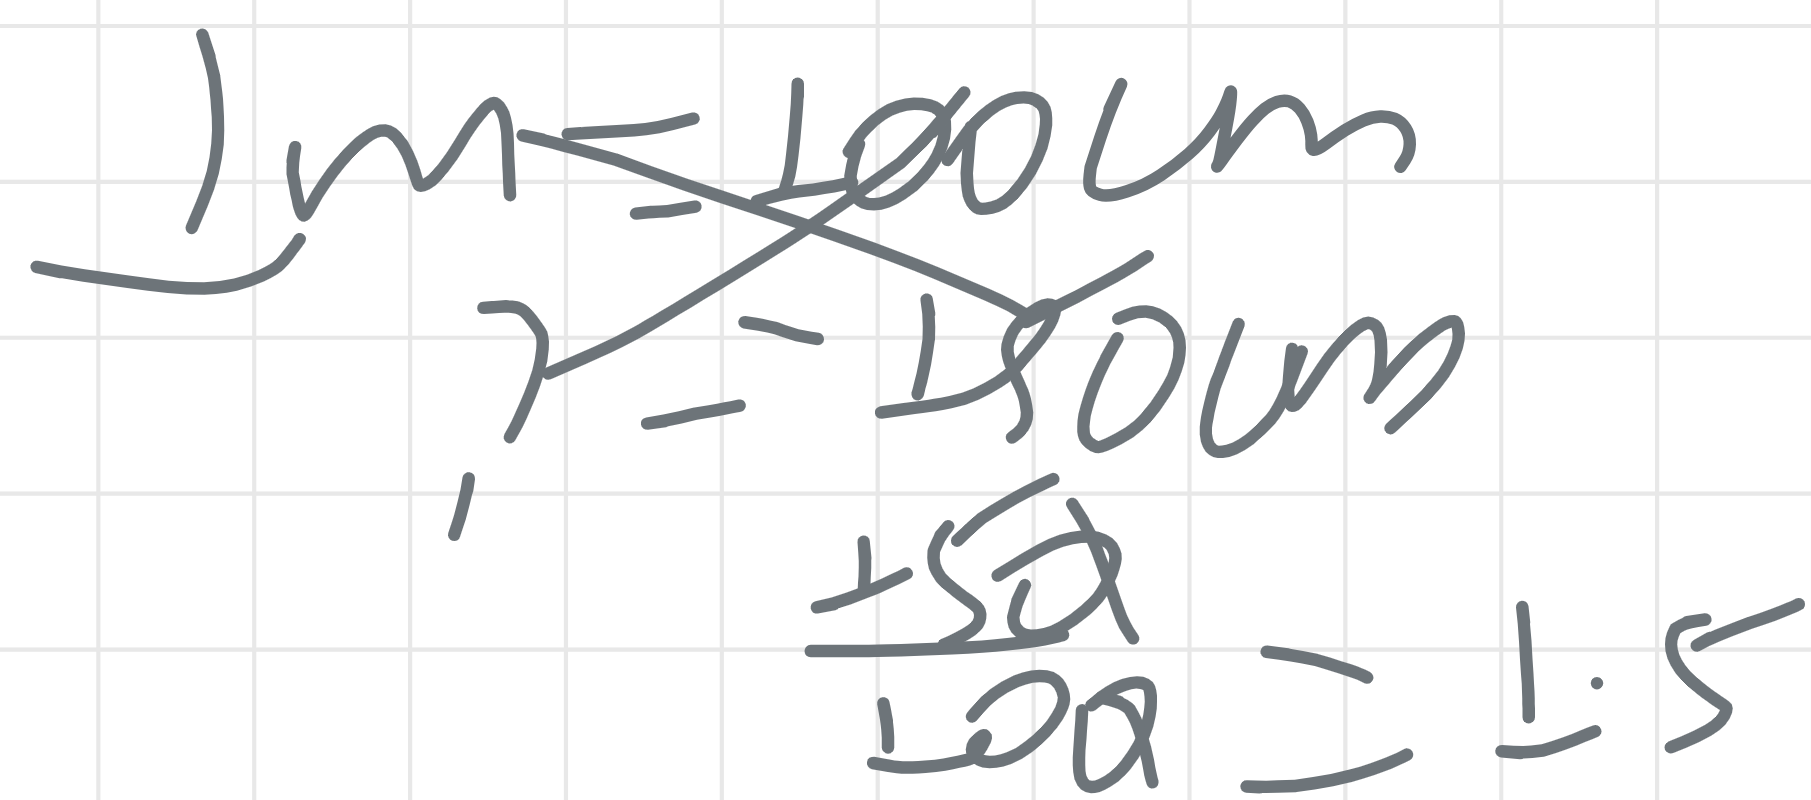 1m = 100cm
? = 150cm
150
100 = 1.5